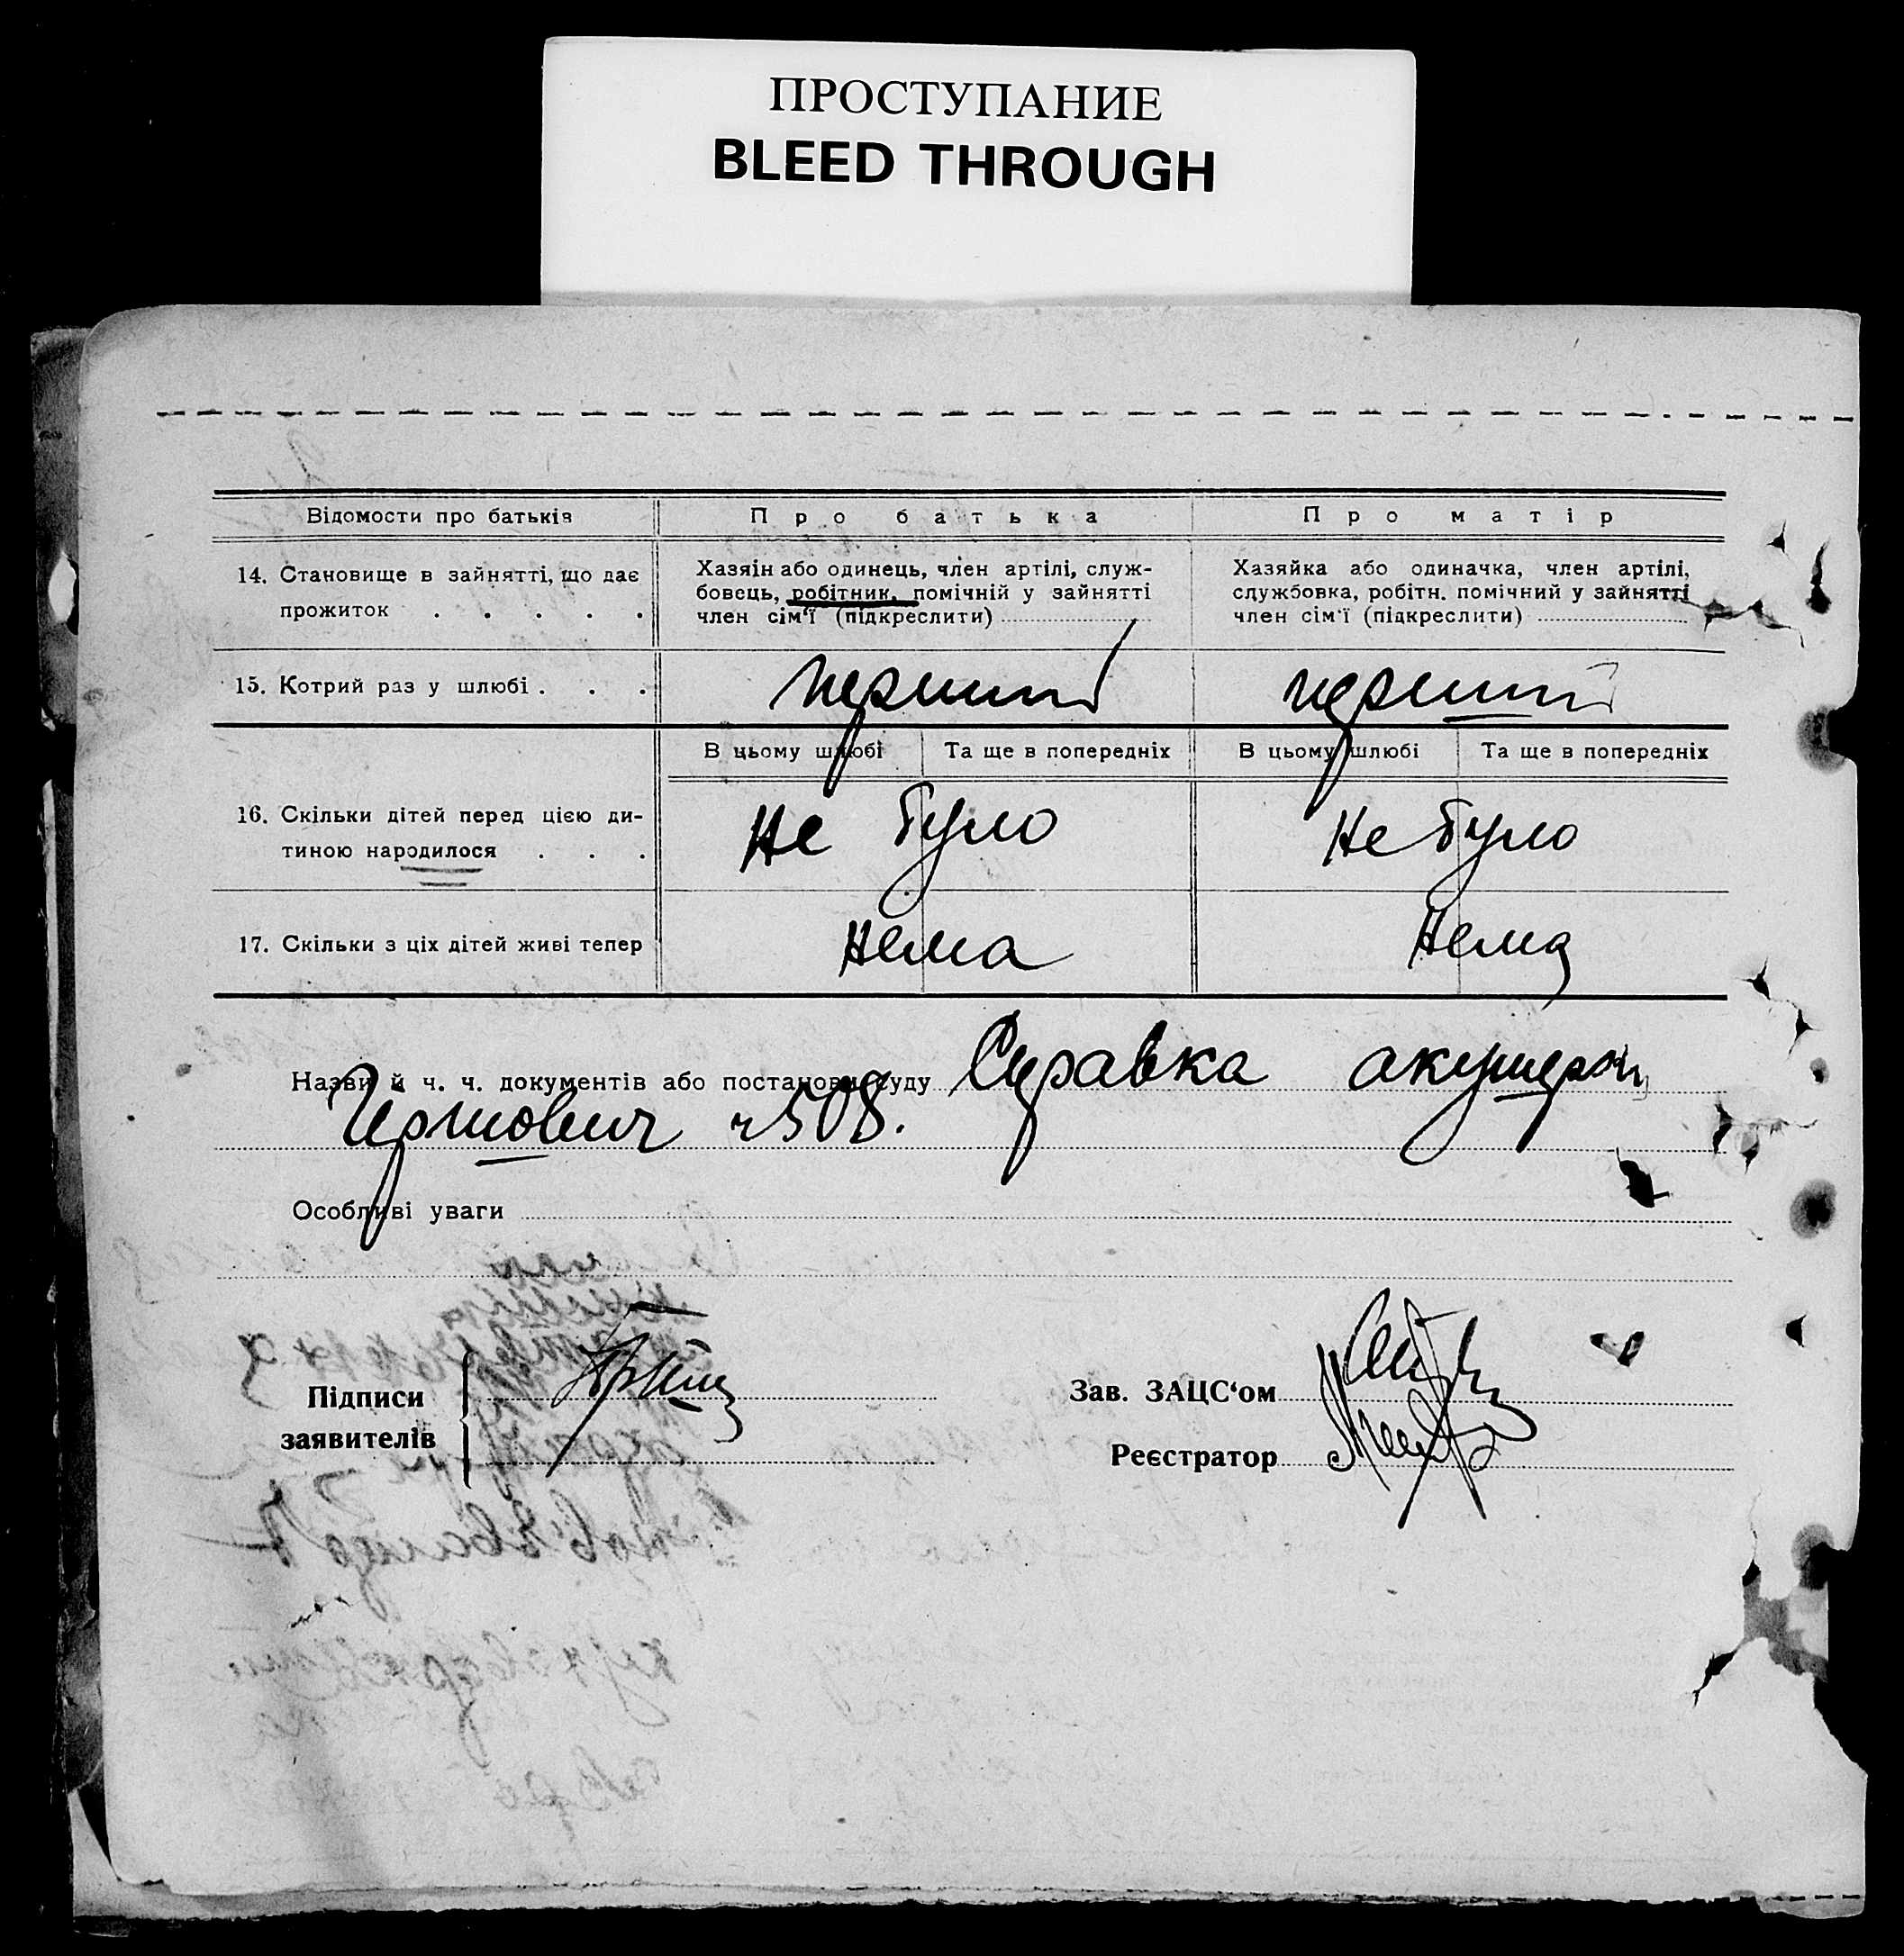 ПРОСТУПАНИЕ
BLEED THROUGH
Відомости про батьків
Про батька
Про матір
14. Становище в зайнятті, що дає
прожиток . . . . .
Хазяін або одинець, член артілі, служ-
бовець, робітник, помічній у зайнятті
член сім'ї (підкреслити)
Хазяйка або одиначка, член артілі,
службовка, робітн. помічний у зайнятті
член сім'ї (підкреслити)
15. Котрий раз у шлюбі . . .
перший
перший
В цьому шлюбі
Та ще в попередніх
В цьому шлюбі
Та ще в попередніх
16. Скільки дітей перед цією ди-
тиною народилося . . .
Не було
Не було
17. Скільки з ціх дітей живі тепер
Нема
Нема
Назви й ч. ч. документів або постанови суду Справка акушерки
ч 508.
Особливі уваги
Підписи
заявителів
Зав. ЗАЦС‘ом
Реєстратор